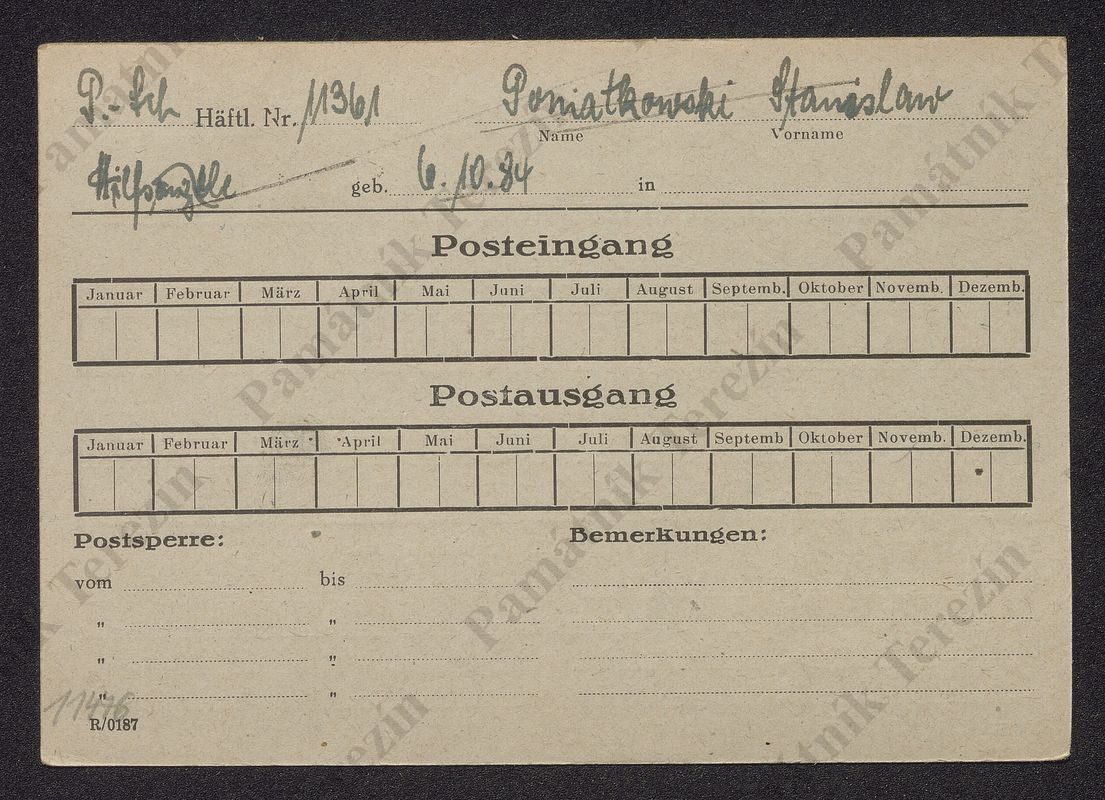 P.-Sch Häftl. Nr. 11361 Poniatkowski Stanislaw
Name Vorname
geb. 6.10.84 in
Posteingang
Januar Februar März April Mai Juni Juli August Septemb. Oktober Novemb. Dezemb.
Postausgang
Januar Februar März April Mai Juni Juli August Septemb Oktober Novemb. Dezemb.
Postsperre: Bemerkungen:
vom bis
" "
" "
" "
11476
R/0187
Památník Terezín